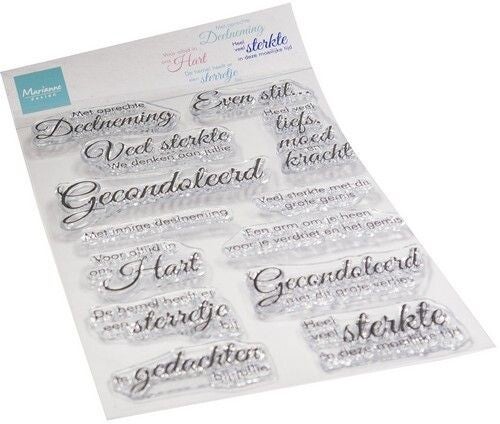 Marianne
DESIGN
Met oprechte
Deelneming
Voor altijd in
ons Hart
Heel veel
sterkte
in deze moeilijke tijd
De hemel heeft er
een sterretje
bij
Met oprechte
Deelneming
Even stil...
Veel sterkte
We denken aan jullie
Heel veel
liefs,
moed
en
kracht
Gecondoleerd
Veel sterkte met dit
grote gemis
Met innige deelneming
Een arm om je heen
voor je verdriet en het gemis
Voor altijd in
ons Hart
Gecondoleerd
met dit grote verlies
De hemel heeft er
een sterretje bij
Heel
veel sterkte
in deze moeilijke tijd
In gedachten
bij jullie